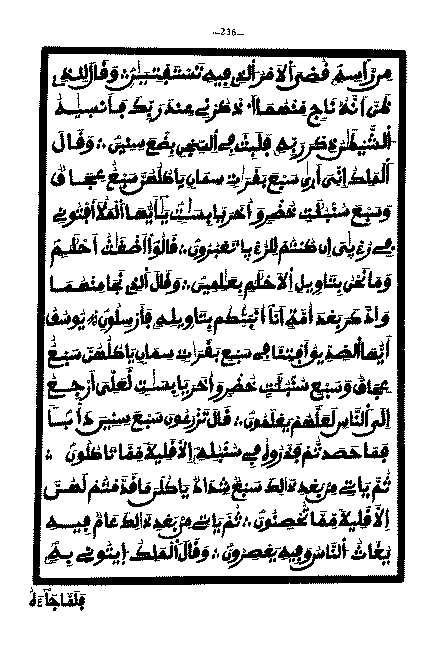 —236—
من رأسه قضي ألامر الذي فيه تستفتين ∴ وقال للذي
ظن أنه ناج منهما اذكرني عند ربك فأنسيه
الشيطن ذكر ربه فلبث في السجن بضع سنين ∴ وقال
الملك إني أرى سبع بقرات سمان ياكلهن سبع عجاف
وسبع سنبلت خضر وأخر يابست يأيها الملأ افتوني
في رءيي إن كنتم للرءيا تعبرون ∴ قالوا أضغث أحلم
وما نحن بتاويل الاحلم بعلمين ∴ وقال الذي نجا منهما
وادكر بعد أمة أنا أنبئكم بتاويله فأرسلون ∴ يوسف
أيها الصديق أفتنا في سبع بقرات سمان ياكلهن سبع
عجاف وسبع سنبلت خضر وأخر يابست لعلي أرجع
إلى الناس لعلهم يعلمون ∴ قال تزرعون سبع سنين دأبا
فما حصدتم فذروه في سنبله إلا قليلا مما تاكلون ∴
ثم ياتي من بعد ذلك سبع شداد ياكلن ما قدمتم لهن
إلا قليلا مما تحصنون ∴ ثم ياتي من بعد ذلك عام فيه
يغاث الناس وفيه يعصرون ∴ وقال الملك إيتوني به
فلما جاءه